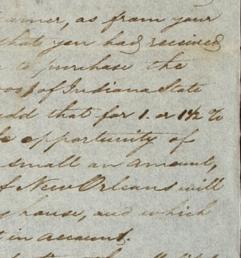 as from your
that you had received
to purchase the
of Indiana State
add that for 1. or 1½ %
opportunity of
small an amount,
New Orleans will
house, and which
in account.